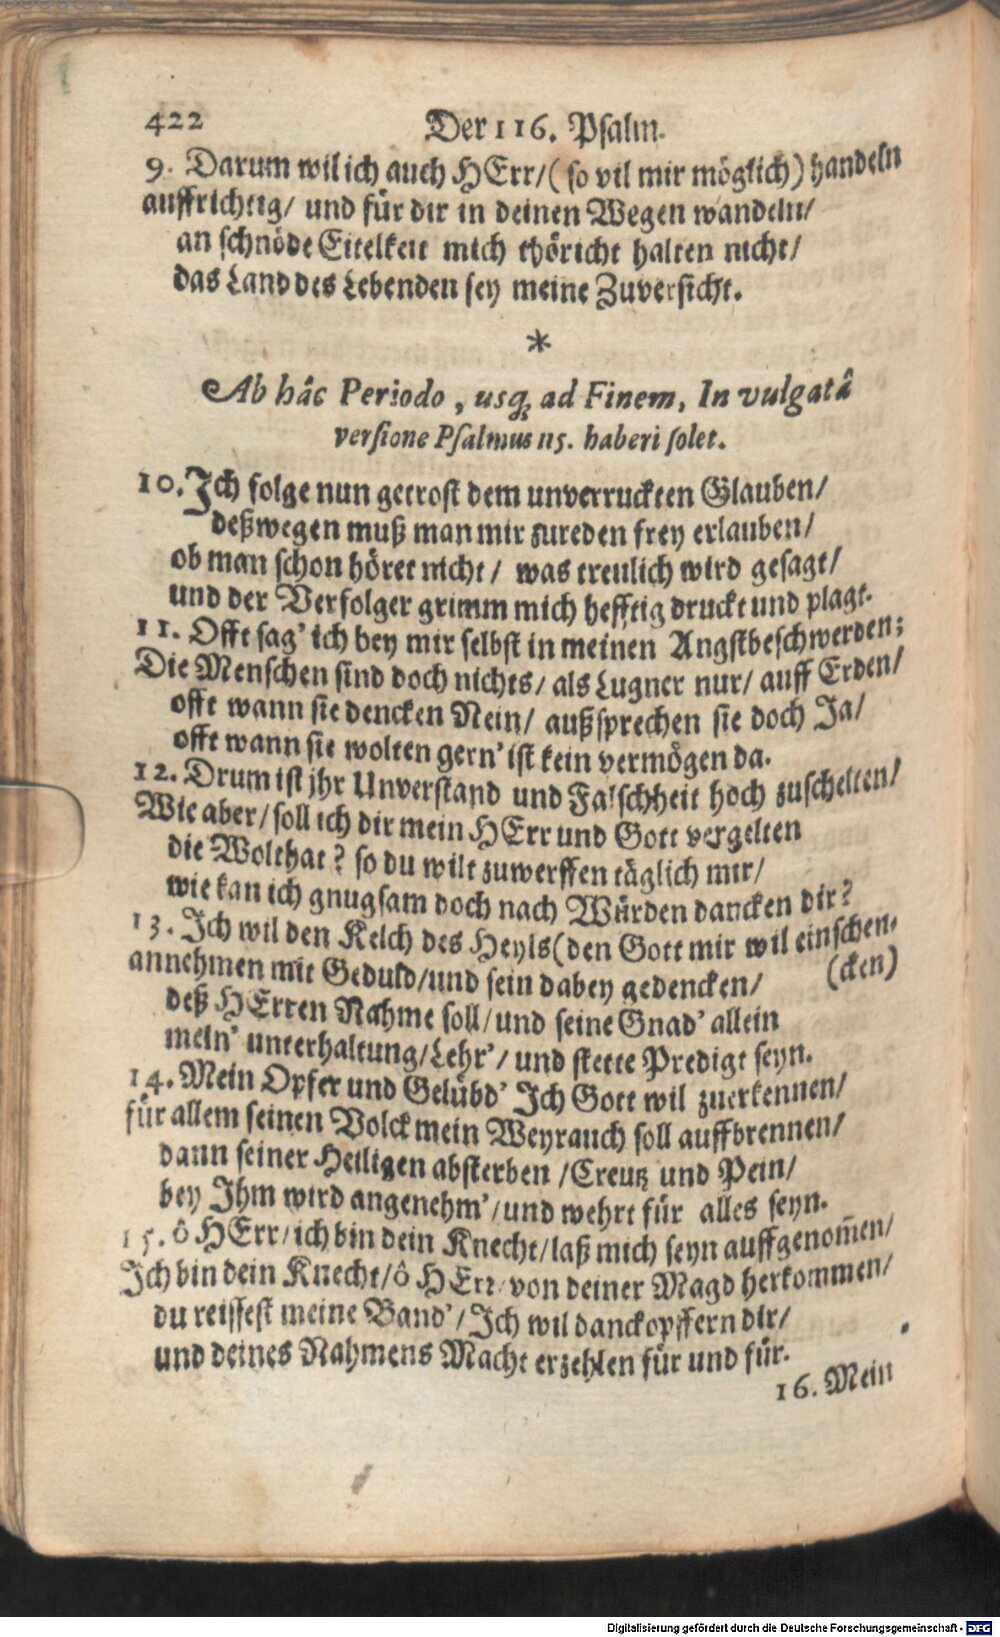 422 Der 116. Psalm.
9. Darum wil ich auch HErr/ (so vil mir möglich) handeln
auffrichtig/ und für dir in deinen Wegen wandeln/
an schnöde Eitelkeit mich thöricht halten nicht/
das Land des Lebenden sey meine Zuversicht.
*
Ab hâc Periodo, usq; ad Finem, In vulgatâ
versione Psalmus 115. haberi solet.
10. Ich folge nun getrost dem unverruckten Glauben/
deßwegen muß man mir zureden frey erlauben/
ob man schon höret nicht/ was treulich wird gesagt/
und der Verfolger grimm mich hefftig druckt und plagt.
11. Offt sag' ich bey mir selbst in meinen Angstbeschwerden;
Die Menschen sind doch nichts/ als Lugner nur/ auff Erden/
offt wann sie dencken Nein/ außsprechen sie doch Ja/
offt wann sie wolten gern' ist kein vermögen da.
12. Drum ist jhr Unverstand und Falschheit hoch zuschelten/
Wie aber/ soll ich dir mein HErr und Gott vergelten
die Wolthat? so du wilt zuwerffen täglich mir/
wie kan ich gnugsam doch nach Würden dancken dir?
13. Ich wil den Kelch des Heyls (den Gott mir wil einschen-
annehmen mit Geduld/ und sein dabey gedencken/ (cken)
deß HErren Nahme soll/ und seine Gnad' allein
mein' unterhaltung/ Lehr'/ und stette Predigt seyn.
14. Mein Opfer und Gelübd' Ich Gott wil zuerkennen/
für allem seinen Volck mein Weyrauch soll auffbrennen/
dann seiner Heiligen absterben/ Creutz und Pein/
bey Ihm wird angenehm'/ und wehrt für alles seyn.
15. ô HErr/ ich bin dein Knecht/ laß mich seyn auffgenom̃en/
Ich bin dein Knecht/ ô HErr/ von deiner Magd herkommen/
du reissest meine Band'/ Ich wil danckopffern dir/
und deines Nahmens Macht erzehlen für und für.
16. Mein
Digitalisierung gefördert durch die Deutsche Forschungsgemeinschaft - DFG